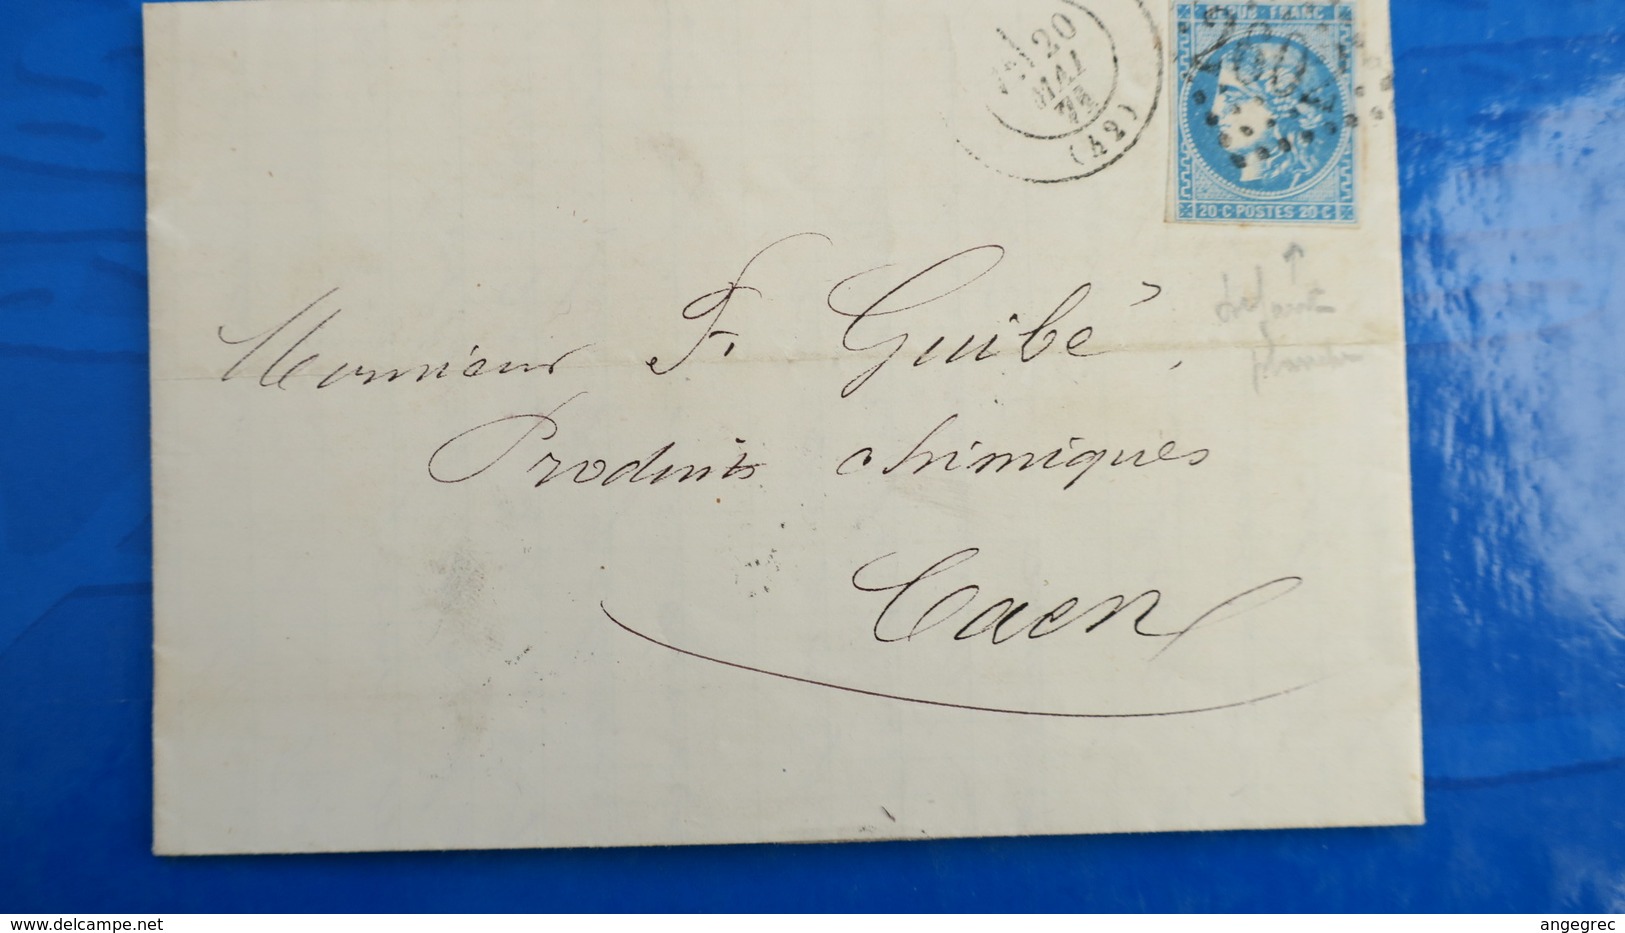 20
MAI
(42)
REPUB · FRANC
20 C POSTES 20 C
Monsieur F. Guibé,
Produits chimiques
Caen
www.delcampe.net
angegrec